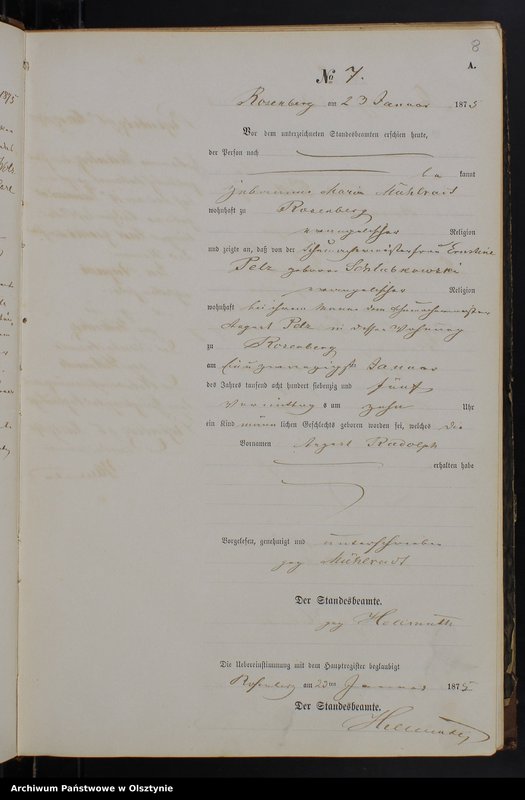 8
A.
№ 7.
Rosenberg am 23 Januar 1875
Vor dem unterzeichneten Standesbeamten erschien heute,
der Person nach
be kannt
Hebamme Maria Mühlradt
wohnhaft zu Rosenberg
evangelischer Religion
und zeigte an, daß von der Schuhmachermeisterfrau Ernstine
Pelz geborne Schlubkowski
evangelischer Religion
wohnhaft bei ihrem Manne dem Schuhmachermeister
August Pelz in dessen Wohnung
zu Rosenberg
am Januar
des Jahres tausend acht hundert siebenzig und fünf
Vormittags um zehn Uhr
ein Kind männlichen Geschlechts geboren worden sei, welches die
Vornamen August Rudolph
erhalten habe
Vorgelesen, genehmigt und unterschrieben
gez Mühlradt
Der Standesbeamte.
gez
Die Uebereinstimmung mit dem Hauptregister beglaubigt
Rosenberg am 23ten Januar 1875
Der Standesbeamte.
Archiwum Państwowe w Olsztynie